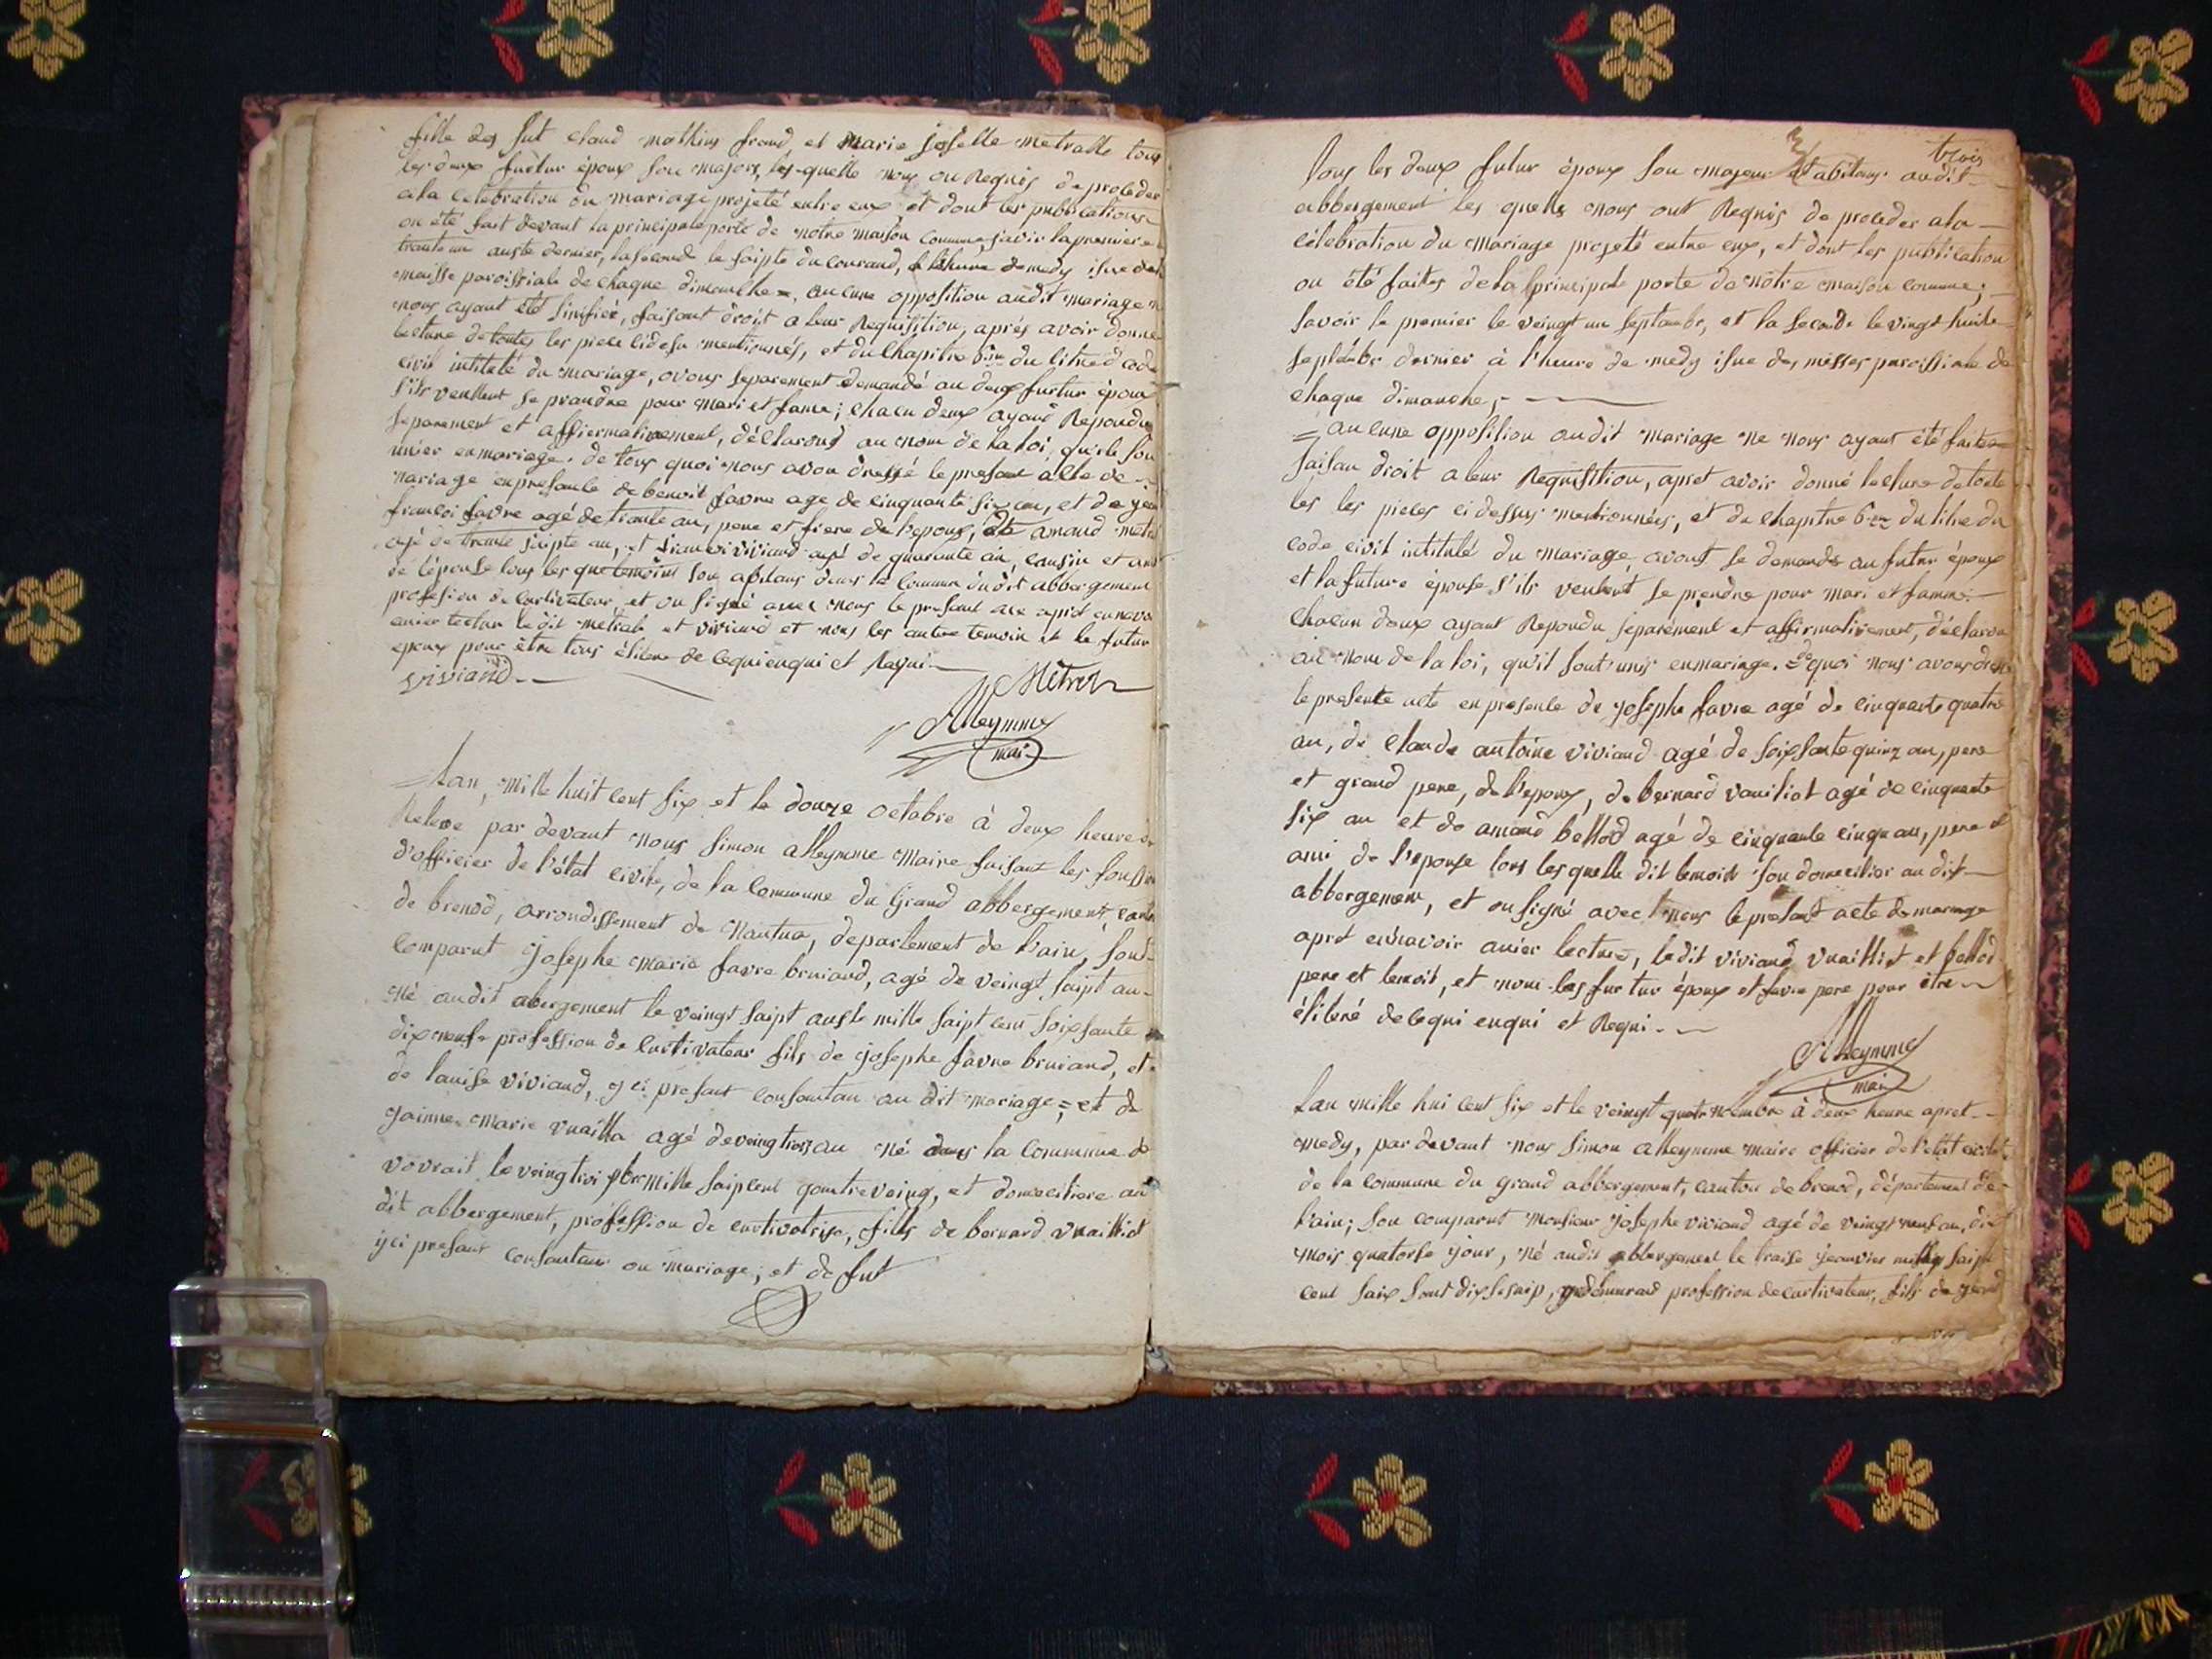 fille des fut claud mathieu frand et Marie josette metralle tous
les deux furtur époux son majors, les-quelle nous on Requis de proceder
a la celebration du mariage projeté entre eux, et dont les publications
on été fait devant la principale porte de notre maison commune, savoir la premiere
trante un auste dernier, la seconde le saipte du courand, a l'heure de medy isue de la
maisse paroissiale de chaque dimanche =, aucune opposition audit mariage n
nous ayant été sinifiée, faisant droit a leur Requisition, aprés avoir donné
lecture de toutes les piece cidesu mentionnés, et du Chapitre 6ème du titre d code
civil intitulé du mariage, avons separement demandé au deux furtur époux
s'ils veullent se prandre pour mari et fame; chacu deux ayand Repondu
separement et affiermativement, déclarond au nom de la loi, qu'ile son
unier en mariage. de tous quoi nous avon dressé le presant acte de
mariage en presance de benoit favre age de cinquante six an, et de
francoi favre agé de trante an, pere et frere de l'epoux, de amand metral
agé de trante saipte an, et francoi viviand agé de quarante an, cousin et ami
de l'épouse tous les que temoins son abitans dans la commun du dit abbergement
profesion de curtivateur et on signé avec nous le presant ace apret en navoir
anier lectur le dit metral et viviand et nous les autre temoin et le futur
epoux pour être tous élitere de cequi enqui et Raqui
viviand
Metral
Alleymme
mair
Lan, mille huit cent six et le douze octobre à deux heure de
Relevé par devant nous Simon alleymme maire faisant les fonssion
d'officier de l'état civile, de la commune du Grand abbergement, canton
de brenod, arrondissement de Nantua, departement de l'ain, sont
comparut Josephe Marie favre bruiand, agé de veingt saipt an
né audit abergement le veingt saipt auste mille saipt cent soixsante
dix neufe profession de curtivateur fils de josephe favre bruiand, et
de louise viviand, y ci presant consantan au dit mariage =, et de
jainne Marie vuailla agé de veingtrois an né dans la commune de
vovrait le veingtroi 9bre mille saipcent quatreveing, et domeciliere au
dit abbergement, profession de curtivatrise, fille de bernard vuailliat
ijci presant consantan au mariage, et de fut
trois
3
Tous les deux futur époux son majeur et abitans audit
abbergement les quelle nous ont Requis de proceder a la
célébration du mariage projeté entre eux, et dont les publication
on été faites de la principale porte de notre maison commune;
savoir la premier le veingt un septembr, et la seconde le vingt huite
septembr dernier à l'heure de medy isue des messes paroissiale de
chaque dimanche,
= aucune opposition audit mariage ne nous ayant été faites
faisan droit a leur Requisition, apret avoir donné lecture de toute
les les pieces cidessus mentionnées, et du chapitre 6-em du titre du
code civil intitulé du mariage, avont se demandé au futur époux
et la future épouse s'ils veulent se prendre pour mari et famme.
Chacun deux ayant Repondu separément et affirmativement, déclaron
au nom de la loi, qu'il sont unis en mariage. de quoi nous avons dress
le presente acte en presence de josephe favre agé de cinquante quatre
an, de claude antoine viviand agé de soixsante quinz an, pere
et grand pere, de l'epoux, de bernard vauiliat agé de cinquante
six an et de amand bellod agé de cinquante cinq an, pere et
ami de l'epouse tous les quelle dit temoit son domecilier au dit
abbergement, et on signé avec nous le presant acte de mariage
apret ennavoir anier lecture, ledit viviand, vuailliat et bellod
pere et temoit, et nous les fur tur époux et favre pere pour être
élitéré de cequi enqui et Requi
Alleymme
mair
Lan mille hui cent six et le veingt quatr novembre à deux heure apret
medy, par devant nous Simon alleymme maire officier de l'etat civile
de la commune du grand abbergement, canton de brenod, département de
l'ain; son comparut Monsieur josephe viviand agé de veingt neuf an, dix
mois quatorse jour, né audit abbergement le traise jeanvier mille saipt
cent saix sont dix sesaip, y demeurand profession de curtivateur, fils de